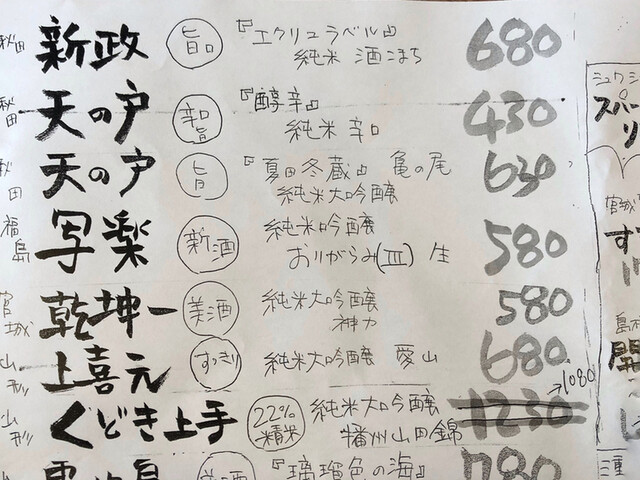 秋田 新政 旨口 『エクリュラベル』 680
純米 酒こまち
秋田 天の戸 辛口旨 『醇辛』 430
純米 辛口
秋田 天の戸 旨 『夏田冬蔵』 亀の尾 630
純米大吟醸
福島 写楽 新酒 純米吟醸 580
おりがらみ(Ⅲ) 生
宮城 乾坤一 美酒 純米大吟醸 580
神力
山形 上喜元 すっきり 純米大吟醸 愛山 680
→1080
山形 くどき上手 22%精米 純米大吟醸 1230
播州山田錦
美酒 『瑠璃色の海』 780
シュワシ
スパー
リ
宮城
す
島
開
三重